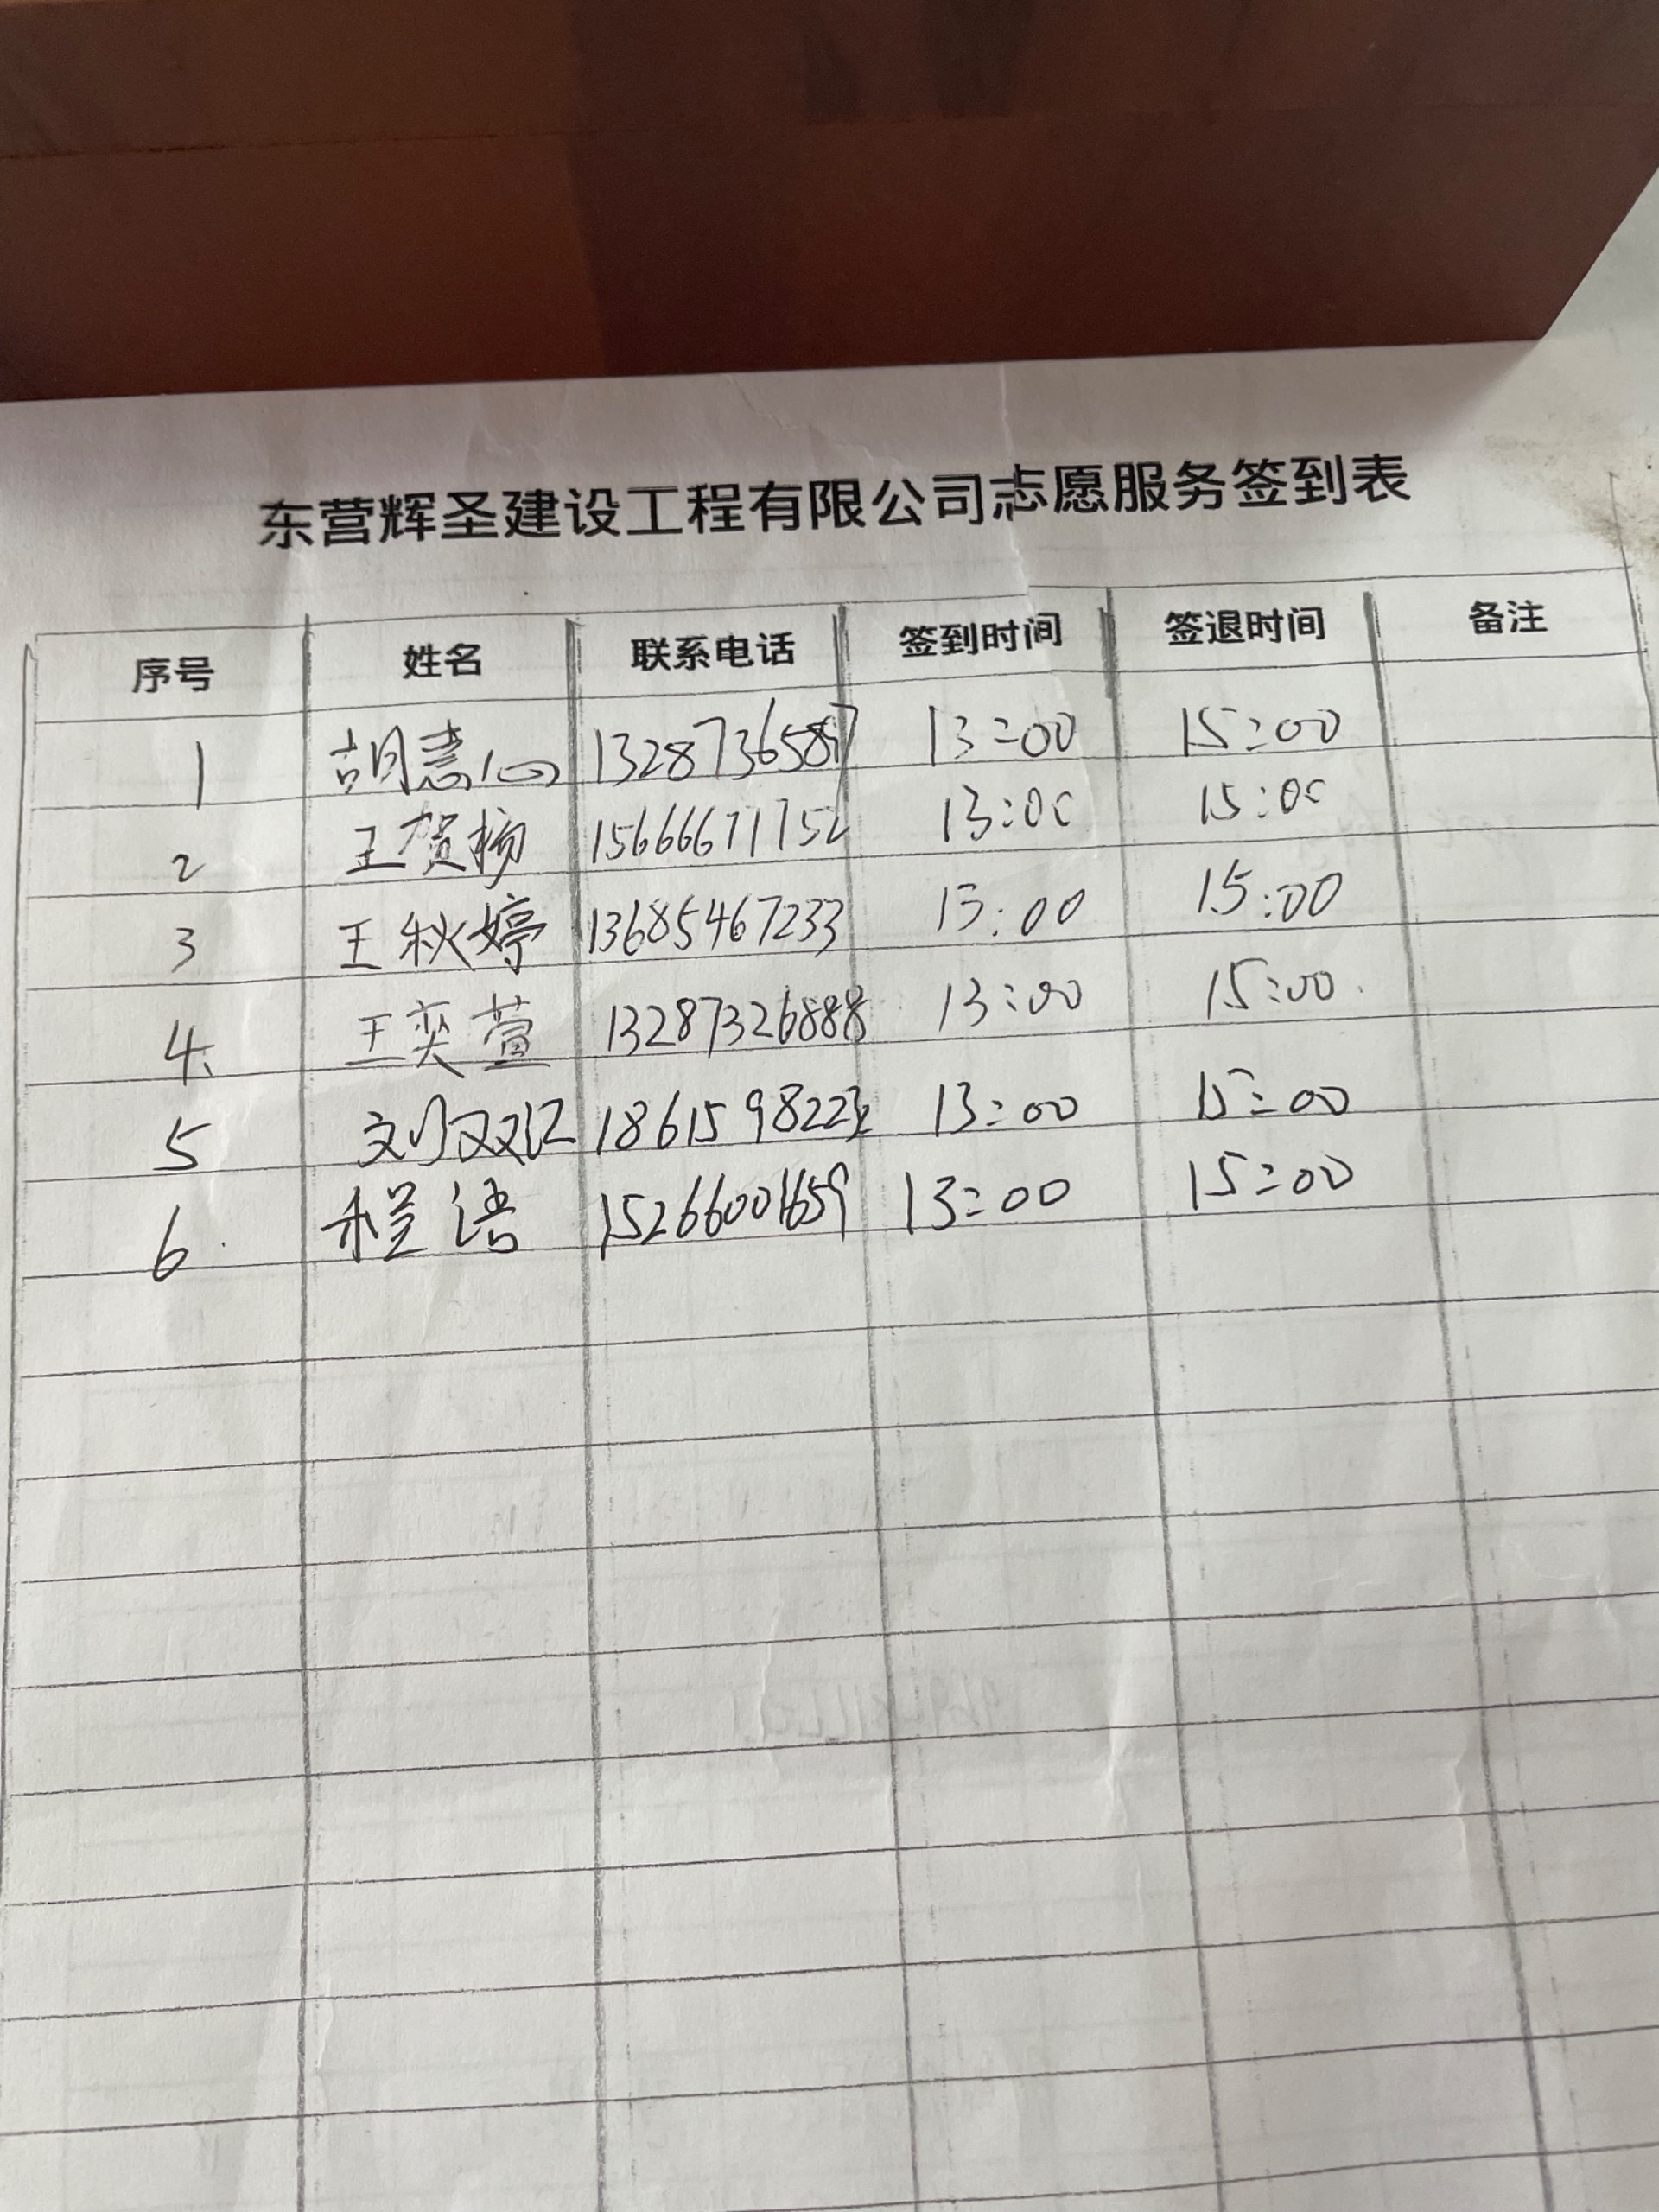 东营辉圣建设工程有限公司志愿服务签到表
序号 姓名 联系电话 签到时间 签退时间 备注
1 胡 13287365887 13:00 15:00
2 王贺杨 15666671752 13:00 15:00
3 王秋婷 13685467233 13:00 15:00
4、 王奕萱 13287326888 13:00 15:00
5 刘双江 1861598223 13:00 15:00
6. 程浩 15266001659 13:00 15:00